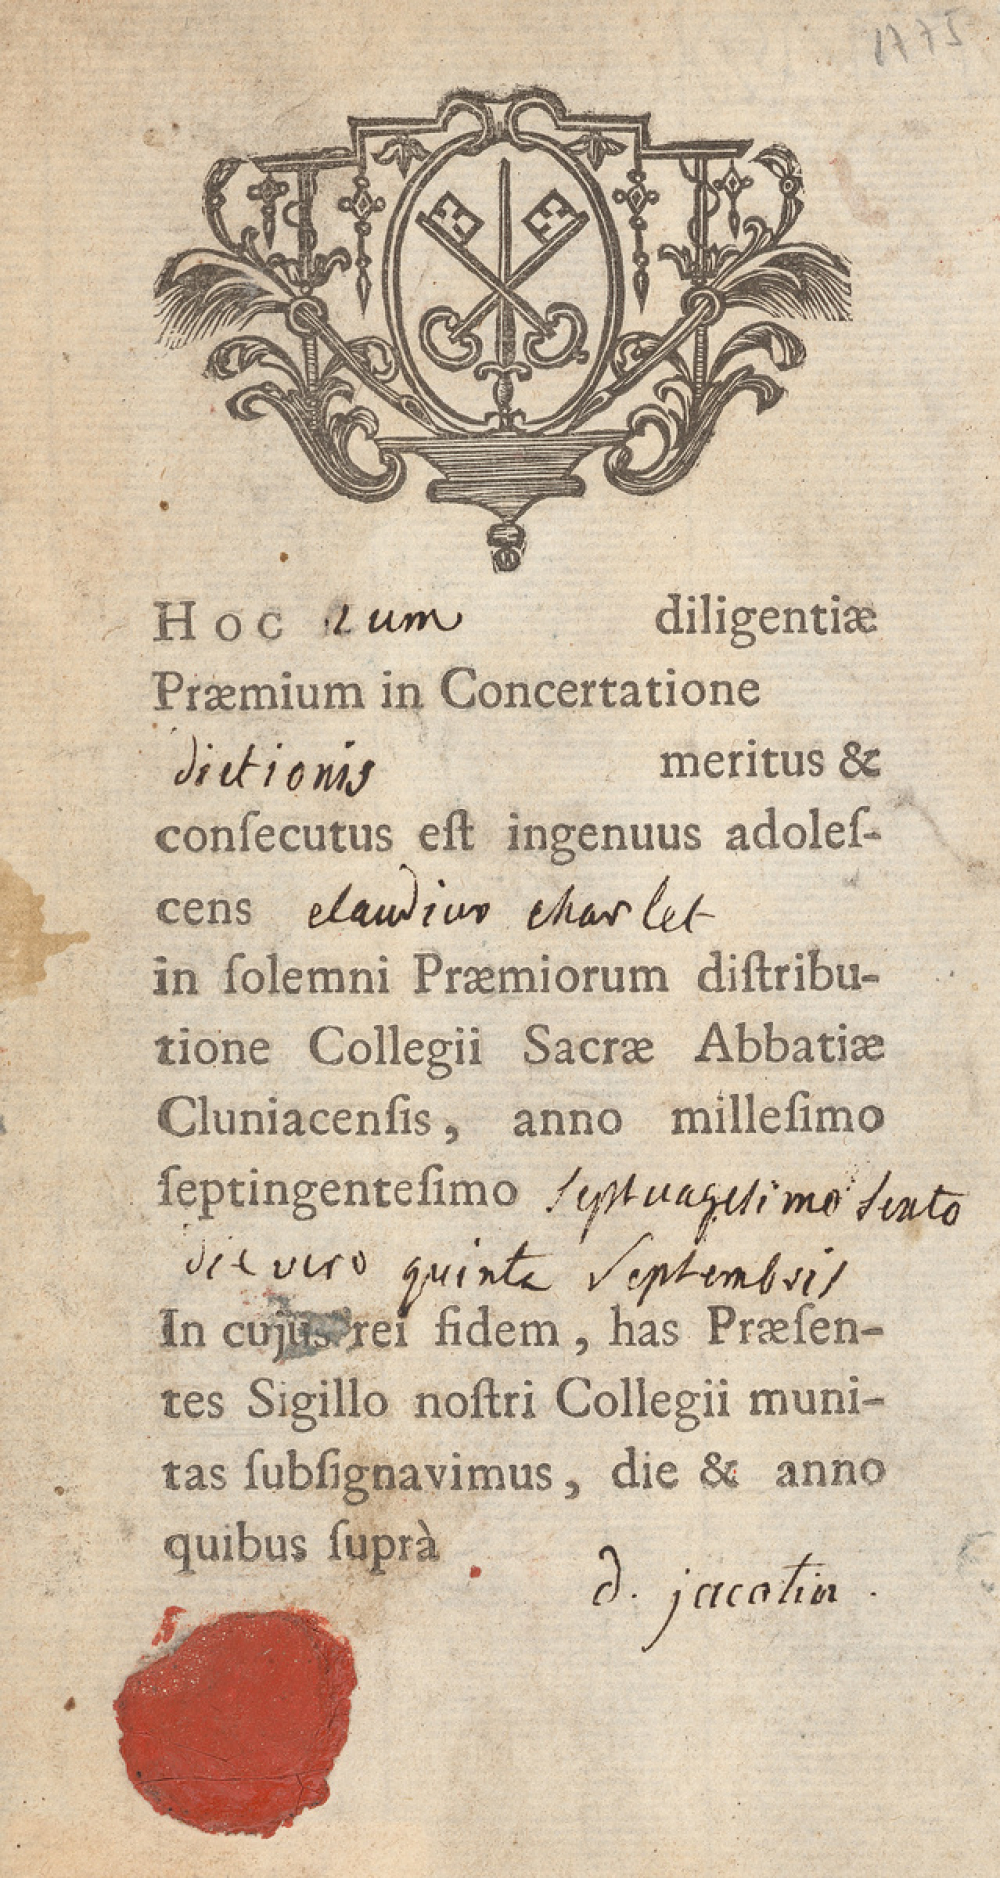 Hoc 1um diligentiæ
Præmium in Concertatione
dictionis meritus &
conſecutus eſt ingenuus adoleſ-
cens claudius charlet
in ſolemni Præmiorum diſtribu-
tione Collegii Sacræ Abbatiæ
Cluniacenſis, anno milleſimo
ſeptingenteſimo septuagesimo sexto
die vero quinta Septembris
In cujus rei fidem, has Præſen-
tes Sigillo noſtri Collegii muni-
tas ſubſignavimus, die & anno
quibus ſuprà
d. jacotin.